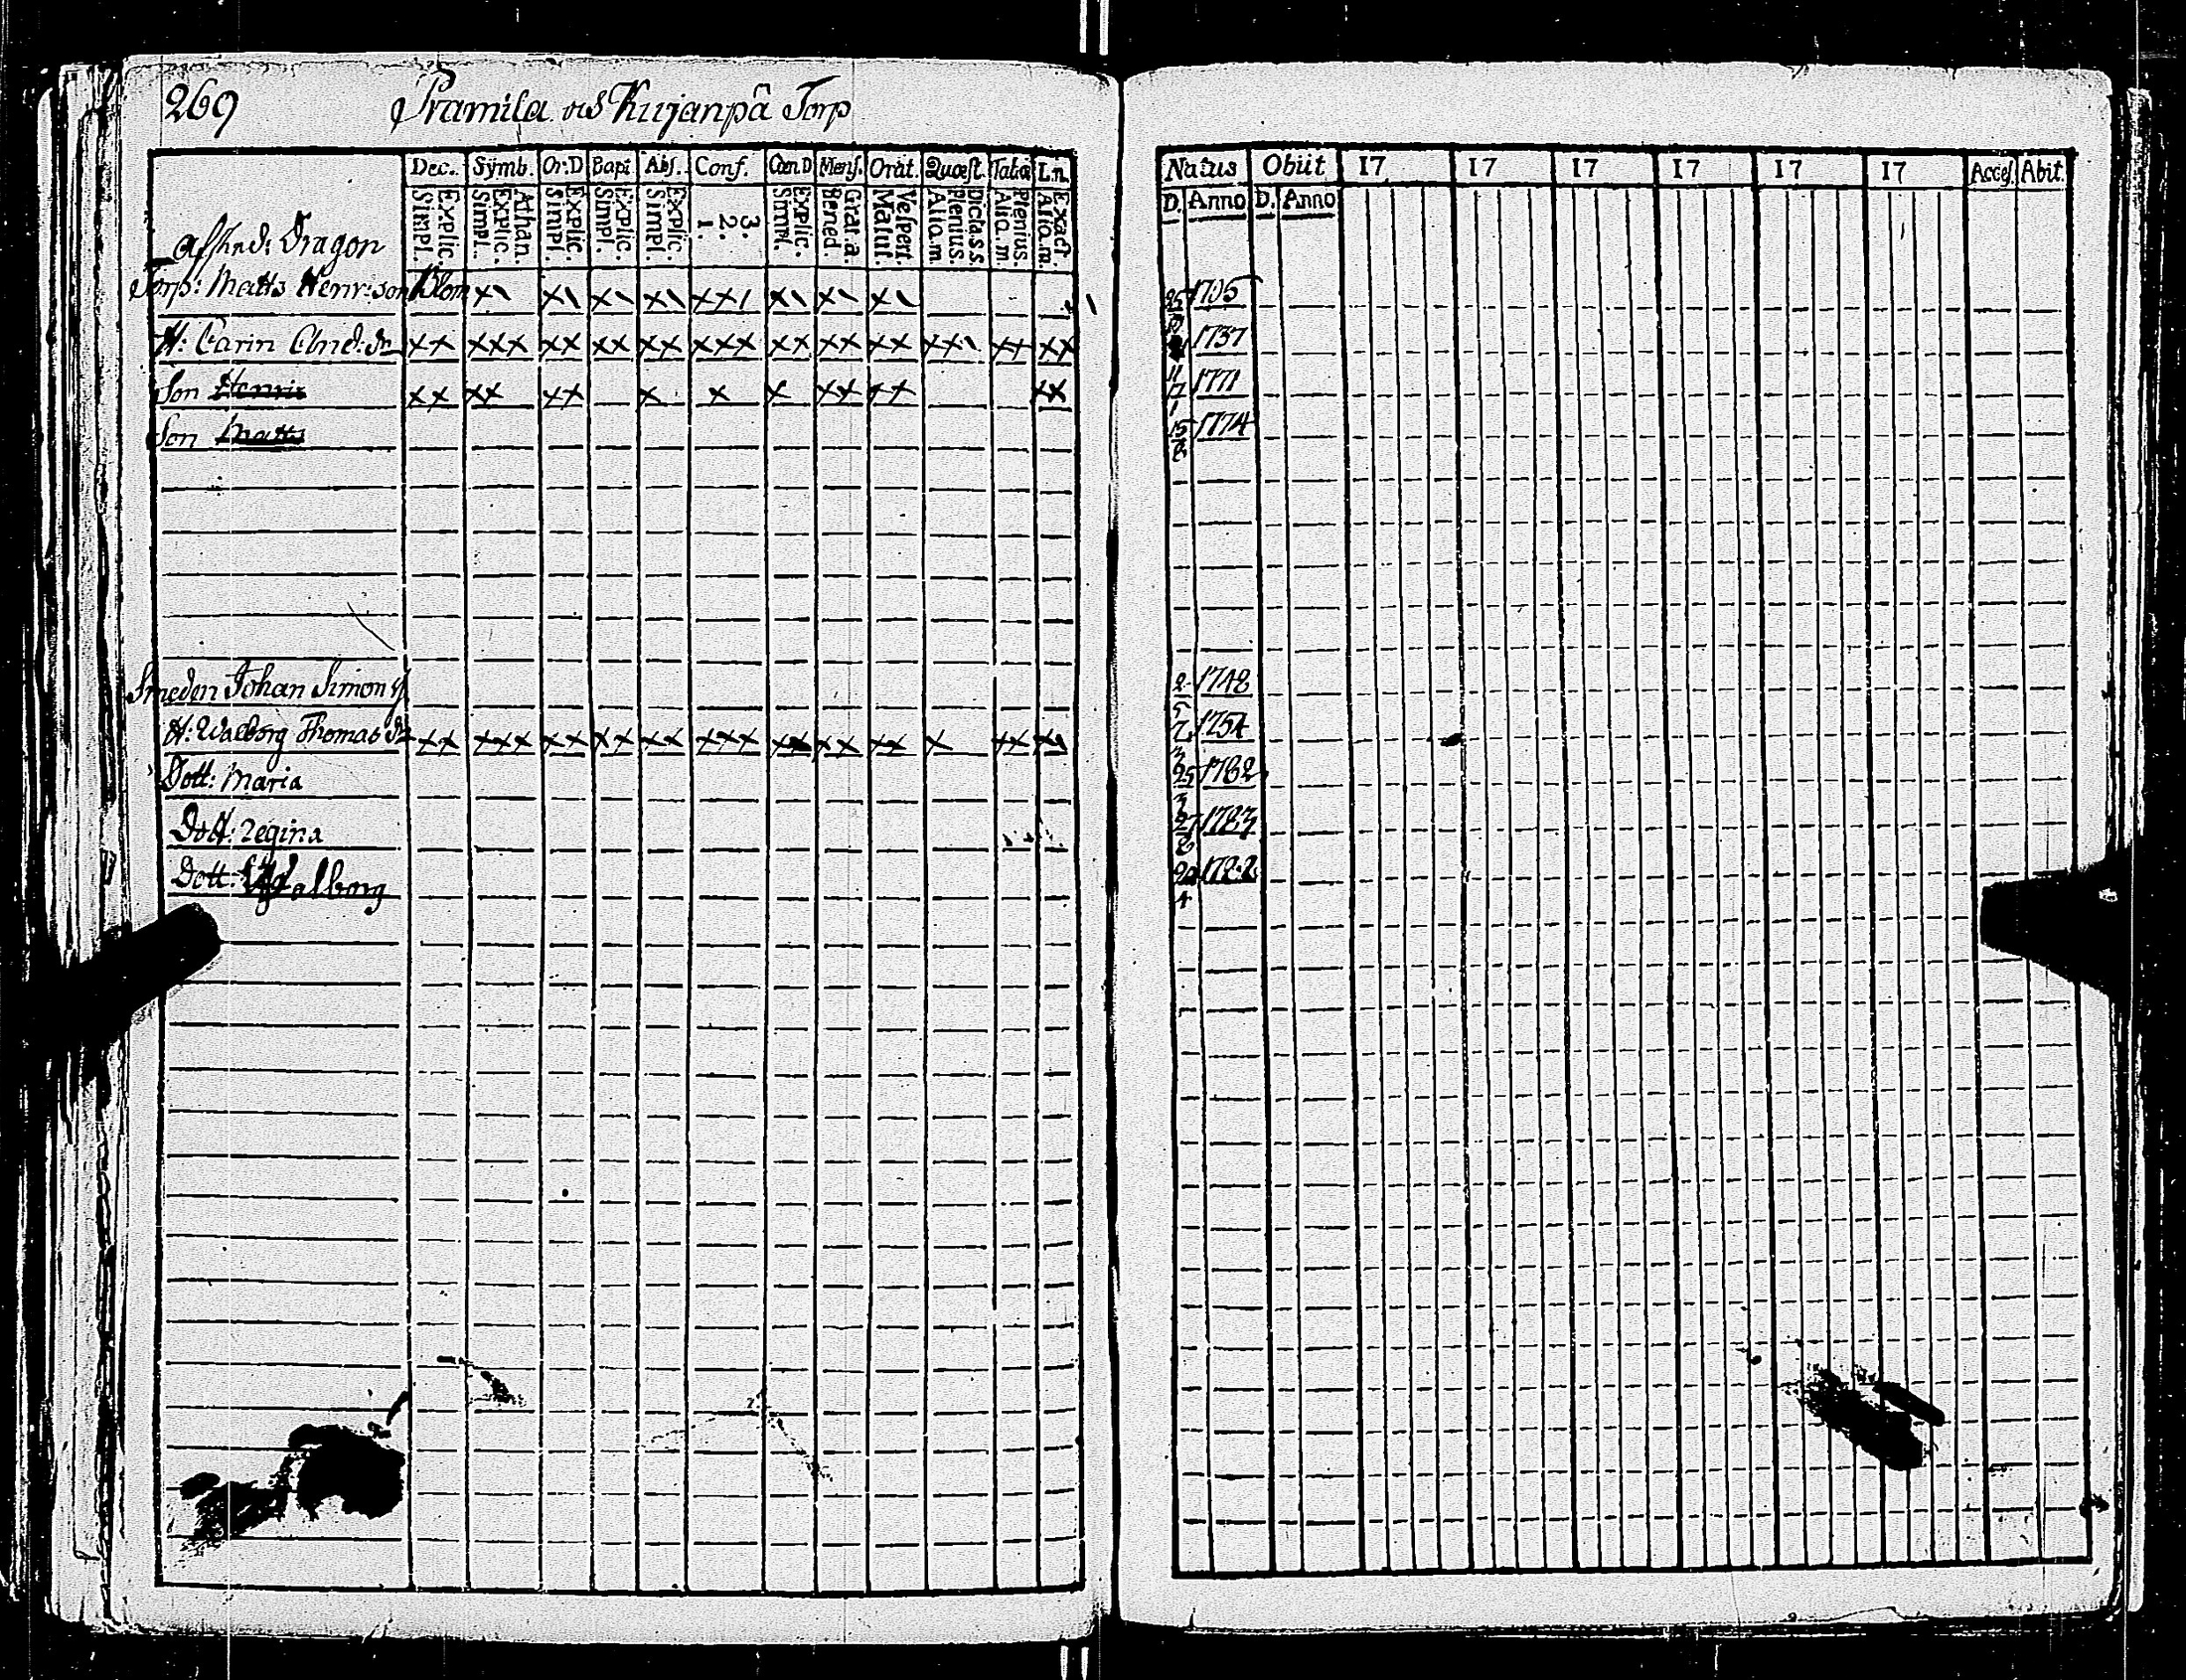 269 Pramila vid Kujanpä Torp
Dec. Symb. Or:D Bapt Abs. Conf. Cœn D Mens. Orat. Quæst. Tab:œ L.n.
Simpl. Explic. Simpl. Explic. Athan. Simpl. Explic. Simpl. Explic. Simpl. Explic. 1. 2. 3. Simpl. Explic. Bened. Grat.a. Matut. Vespert. Aliq.m Plenius Dicta.s.s. Aliq.m. Plenius. Aliq.m. Exact.
Afsked: Dragon
Torp: Matts Henr:son Blom x x x x x x x x x x
H: Carin And: dr xx xxx xx xx xx xxx xx xx xx xx xx xx
Son Henric xx xx xx x x x xx xx xx
Son Matts
Smeden Johan Simon
H: Walborg Thomas dr xx xxx xx xx xx xxx xx xx xx x xx xx
Dott: Maria
Dott: Regina
Dott: Walborg
Natus Obiit 17 17 17 17 17 17 Acces. Abit.
D. Anno D. Anno
1705
1737
11 1771
17
1 1774
15
2 1748
5
7 1754
3
25 1782
3
27 1783
8
4